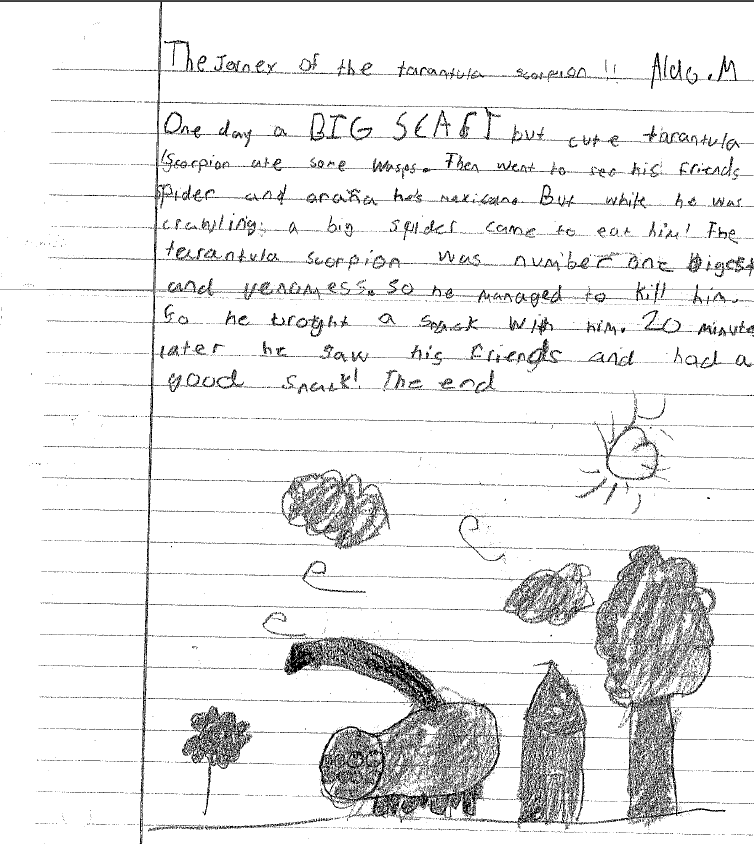 The Jorney of the tarantula scorpion !! Aldo.M
One day a BIG SCARY but cute tarantula
scorpion ate some wasps. Then went to see his friends
spider and araña he's mexicano But while he was
crawling; a big spider came to eat him! The
tarantula scorpion was number one bigest
and venomess. So he managed to kill him.
So he broght a snack with him. 20 minute
later he saw his friends and had a
good snack! The end